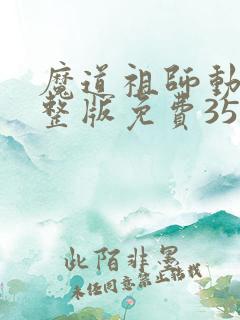 魔道祖師動
整版免費35
此陌非墨
未经同意禁止转载